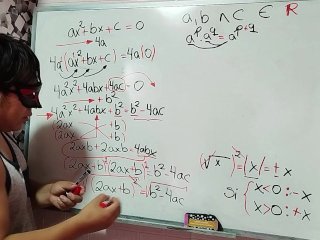 ax²+bx+c=0
→4a
4a(ax²+bx+c)=4a(0)
4a²x²+4abx+4ac-0
→+b²
→4a²x²+4abx+b²=b²-4ac
(2ax +b)
(2ax +b)
2axb+2axb=4abx
(2ax+b)(2ax+b)=b²-4ac
(2ax+b)²=b²-4ac
a,b ∧ c ∈ R
aᵖ·a^q=a^(p+q)
(√x)²=|x|=±x
Si { x<0:-x
x>0:+x